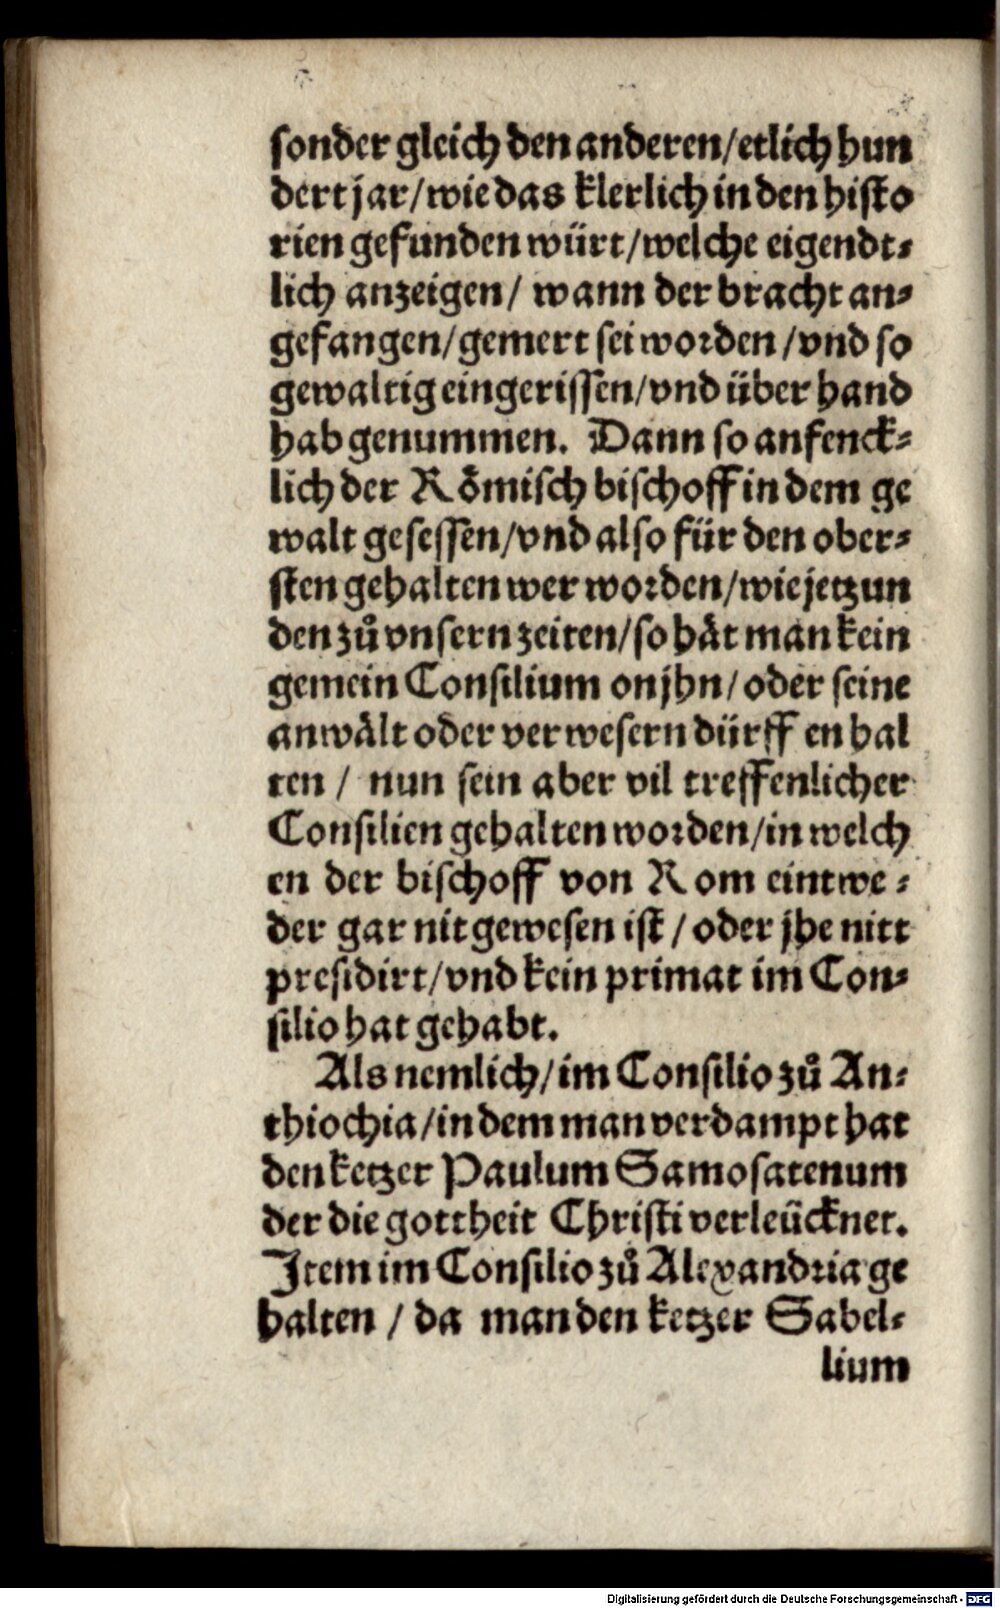 sonder gleich den anderen/etlich hun
dert jar/wie das klerlich in den histo
rien gefunden würt/welche eigendt⸗
lich anzeigen/ wann der bracht an⸗
gefangen/gemert sei worden/vnd so
gewaltig eingerissen/vnd über hand
hab genummen. Dann so anfenck⸗
lich der Rŏmisch bischoff in dem ge
walt gesessen/vnd also für den ober⸗
sten gehalten wer worden/wie jetzun
den zů vnsern zeiten/so håt man kein
gemein Consilium on jhn/oder seine
anwålt oder verwesern dürffen hal
ten / nun sein aber vil treffenlicher
Consilien gehalten worden/in welch
en der bischoff von Rom eintwe⸗
der gar nit gewesen ist/oder jhe nitt
presidirt/vnd kein primat im Con⸗
silio hat gehabt.
Als nemlich/im Consilio zů An⸗
thiochia/in dem man verdampt hat
den ketzer Paulum Samosatenum
der die gottheit Christi verleücknet.
Item im Consilio zů Alexandria ge
halten / da man den ketzer Sabel⸗
lium
Digitalisierung gefördert durch die Deutsche Forschungsgemeinschaft - DFG